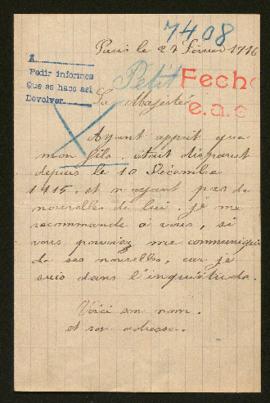 7408
Paris le 27 Février 1916
A
Pedir informes
Que se haga así
Devolver
Petit
Fecho
e.a.c
Sa Majesté
Ayant appris que
mon fils était disparest
depuis le 10 Décembre
1915. et n'ayant pas de
nouvelles de lui. je me
recommande à vous, si
vous pouviez me communiquer
de ses nouvelles, car je
suis dans l'inquiétude.
Voici son nom.
et son adresse.